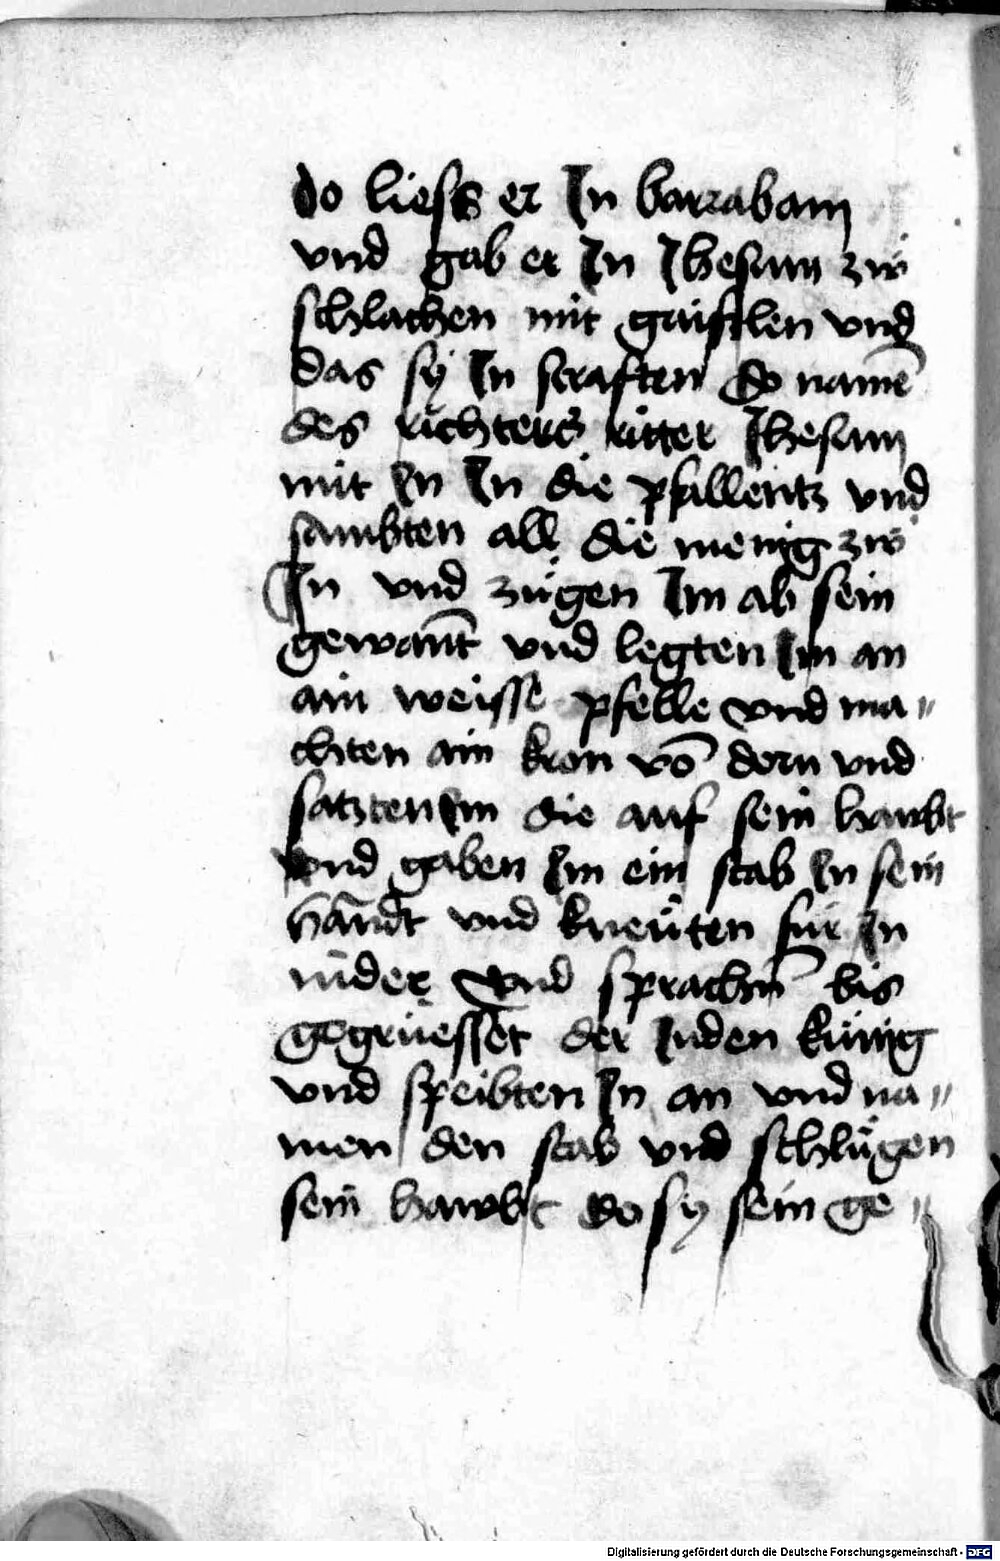 do liess er In barrabam
vnd gab er In Ihesum zů
schlachen mit gaislen vnd
das sy In krafften do namē
des richters ritter Ihesum
mit In In die pfallentz vnd
sambten all die menig zů
In vnd zugen Im ab sein
gewant̄ vnd legten Im an
ain weisse pfelle vnd ma〃
chten ain kron vō dorn vnd
satzten Im die auf sein hawbt
vnd gaben Im ein stab In sein
handt vnd knewten fur In
nider vnd sprachn̄ bis
gegruesset der Iuden kunig
vnd speibten In an vnd na〃
men den stab vnd schlůgen
sein hawbt do sy sein ge〃
Digitalisierung gefördert durch die Deutsche Forschungsgemeinschaft - DFG